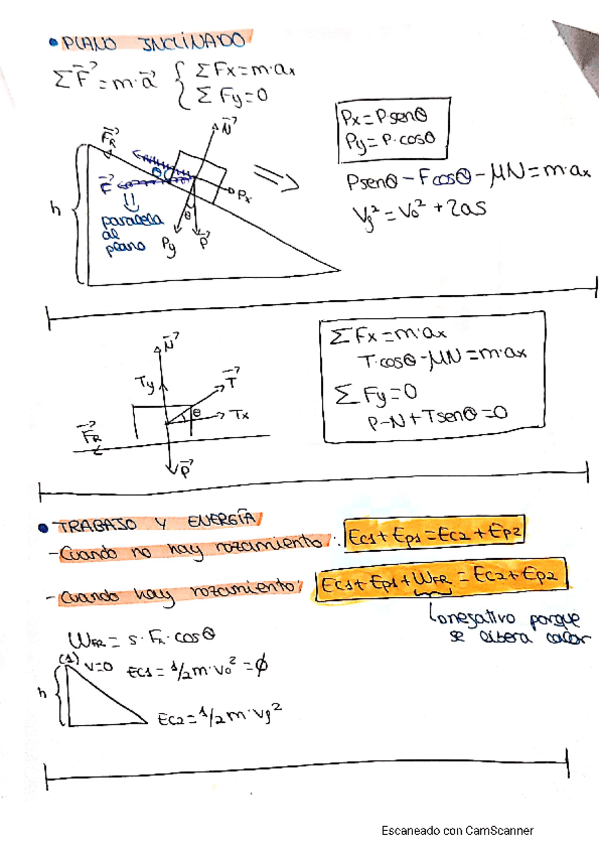 • PLANO INCLINADO
ΣF⃗ = m·a⃗ { ΣFx = m·ax
ΣFy = 0
Px = P·senθ
Py = P·cosθ
N⃗
F⃗R
θ
F⃗
Px
paralela
al
plano
θ
Py
P⃗
h
Psenθ - Fcosθ - μN = m·ax
Vf² = Vo² + 2as
N⃗
Ty
T⃗
θ
Tx
F⃗R
P⃗
ΣFx = m·ax
T·cosθ - μN = m·ax
ΣFy = 0
P - N + Tsenθ = 0
• TRABAJO Y ENERGÍA
- Cuando no hay rozamiento: Ec1 + Ep1 = Ec2 + Ep2
- Cuando hay rozamiento: Ec1 + Ep1 + WFR = Ec2 + Ep2
negativo porque
se libera calor
WFR = s·FR·cosθ
(1) V=0 Ec1 = 1/2 m·vo² = ∅
h
Ec2 = 1/2 m·vf²
Escaneado con CamScanner